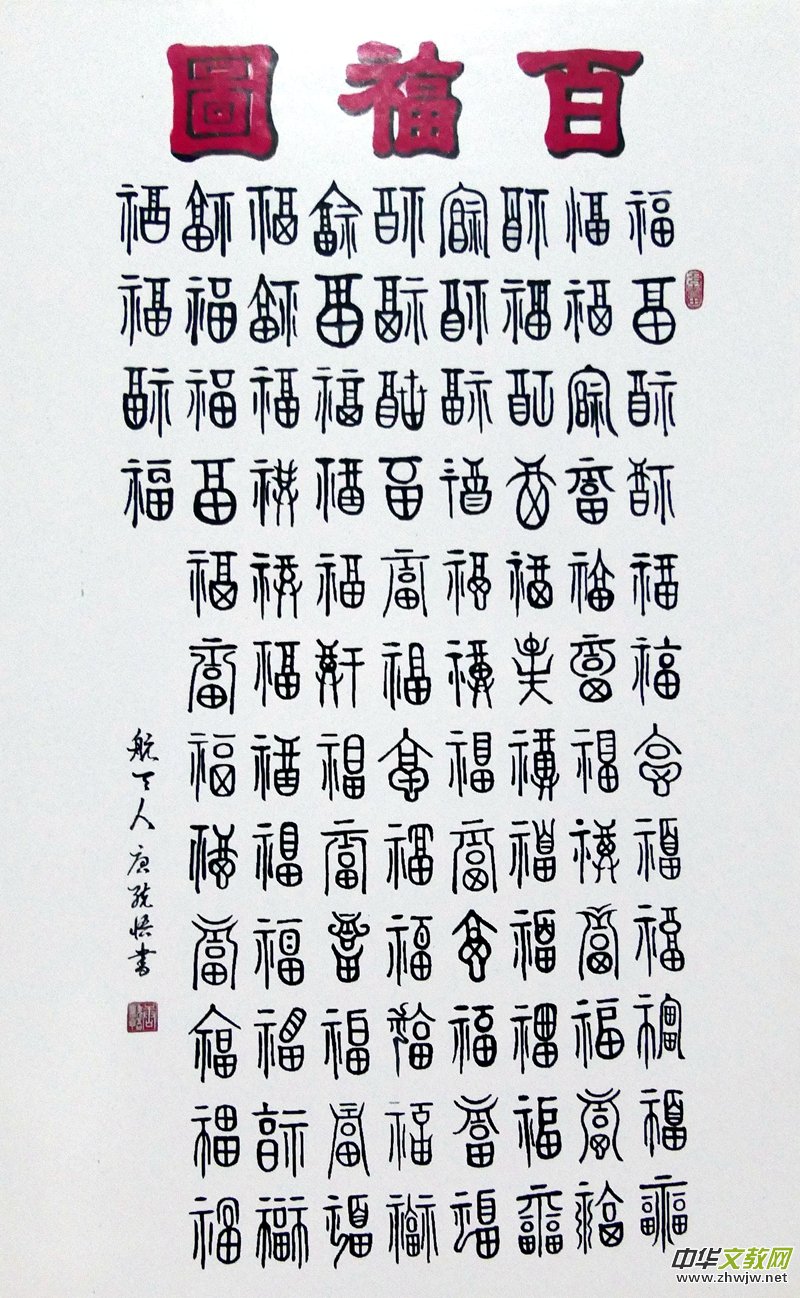 百福圖
福福福福福福福福福福福福
福福福福福福福福福福福福
福福福福福福福福福福福福
福福福福福福福福福福福福
福福福福福福福福福福福福
福福福福福福福福福福福福
福福福福福福福福福福福福
福福福福福福福福福福福福
福福福福
航天人 書
中华文教网
www.zhwjw.net